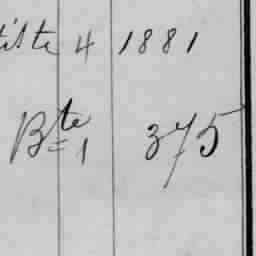 tiste 4 1881
Bte 1 375